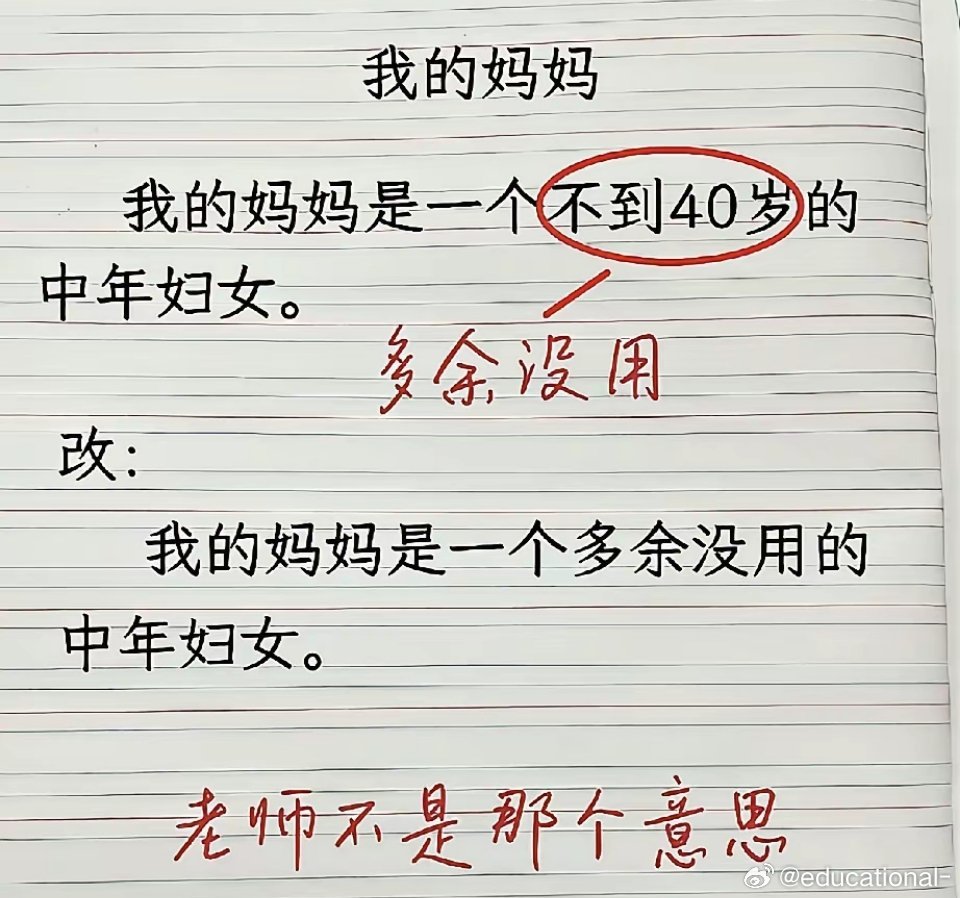 我的妈妈
我的妈妈是一个不到40岁的
中年妇女。
多余没用
改：
我的妈妈是一个多余没用的
中年妇女。
老师不是那个意思
@educational-